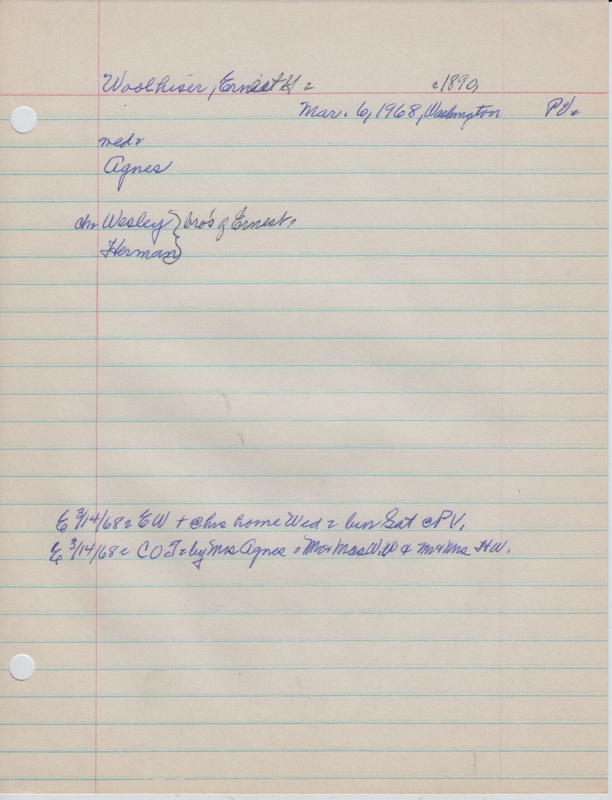 Woolhiser, Ernest H = c1890,
Mar. 6, 1968, Washington PV.
med =
Agnes
chr Wesley } bro's of Ernest,
Herman
E 3/14/68 = EW + @ his home Wed = bur Sat @ PV,
E 3/14/68 = COT = by Mrs Agnes = Mr + Mrs W.W & Mr + Mrs HW.